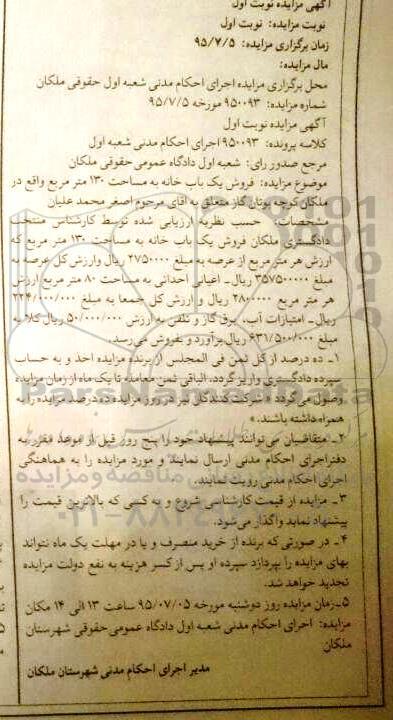 آگهی مزایده نوبت اول
نوبت مزایده: نوبت اول
زمان برگزاری مزایده: ۹۵/۷/۵
مال مزایده:
محل برگزاری مزایده اجرای احکام مدنی شعبه اول حقوقی ملکان
شماره مزایده: ۹۵۰۰۹۳ مورخه ۹۵/۷/۵
آگهی مزایده نوبت اول
کلاسه پرونده: ۹۵۰۰۹۳ اجرای احکام مدنی شعبه اول
مرجع صدور رای: شعبه اول دادگاه عمومی حقوقی ملکان
موضوع مزایده: فروش یک باب خانه به مساحت ۱۳۰ متر مربع واقع در
ملکان کوچه بوتان گاز متعلق به آقای مرحوم اصغر محمد علیان
مشخصات: حسب نظریه ارزیابی شده توسط کارشناس منتخب
دادگستری ملکان فروش یک باب خانه به مساحت ۱۳۰ متر مربع که
ارزش هر متر مربع از عرصه به مبلغ ۲۷۵۰۰۰۰ ریال وارزش کل عرصه به
مبلغ ۳۵۷۵۰۰۰۰۰ ریال ـ اعیانی احداثی به مساحت ۸۰ متر مربع ارزش
هر متر مربع ۲۸۰۰۰۰۰ ریال و ارزش کل جمعا به مبلغ ۲۲۴/۰۰۰/۰۰۰
ریال ـ امتیازات آب، برق گاز و تلفن به ارزش ۵۰/۰۰۰/۰۰۰ ریال کلا به
مبلغ ۶۳۱/۵۰۰/۰۰۰ ریال برآورد و بفروش می‌رسد.
۱ـ ده درصد از کل ثمن فی المجلس از برنده مزایده اخذ و به حساب
سپرده دادگستری واریز گردد. الباقی ثمن معامله تا یک ماه از زمان مزایده
وصول می‌گردد « شرکت کنندگان نیز در روز مزایده ده درصد مزایده را به
همراه داشته باشند. »
۲ـ متقاضیان می‌توانند پیشنهاد خود را پنج روز قبل از موعد مقرر به
دفتر اجرای احکام مدنی ارسال نمایند و مورد مزایده را به هماهنگی
اجرای احکام مدنی رویت نمایند.
۳ـ مزایده از قیمت کارشناسی شروع و به کسی که بالاترین قیمت را
پیشنهاد نماید واگذار می‌شود.
۴ـ در صورتی که برنده از خرید منصرف و یا در مهلت یک ماه نتواند
بهای مزایده را بپردازد سپرده او پس از کسر هزینه به نفع دولت مزایده
تجدید خواهد شد.
۵ـ زمان مزایده روز دوشنبه مورخه ۹۵/۰۷/۰۵ ساعت ۱۳ الی ۱۴ مکان
مزایده: اجرای احکام مدنی شعبه اول دادگاه عمومی حقوقی شهرستان
ملکان
مدیر اجرای احکام مدنی شهرستان ملکان